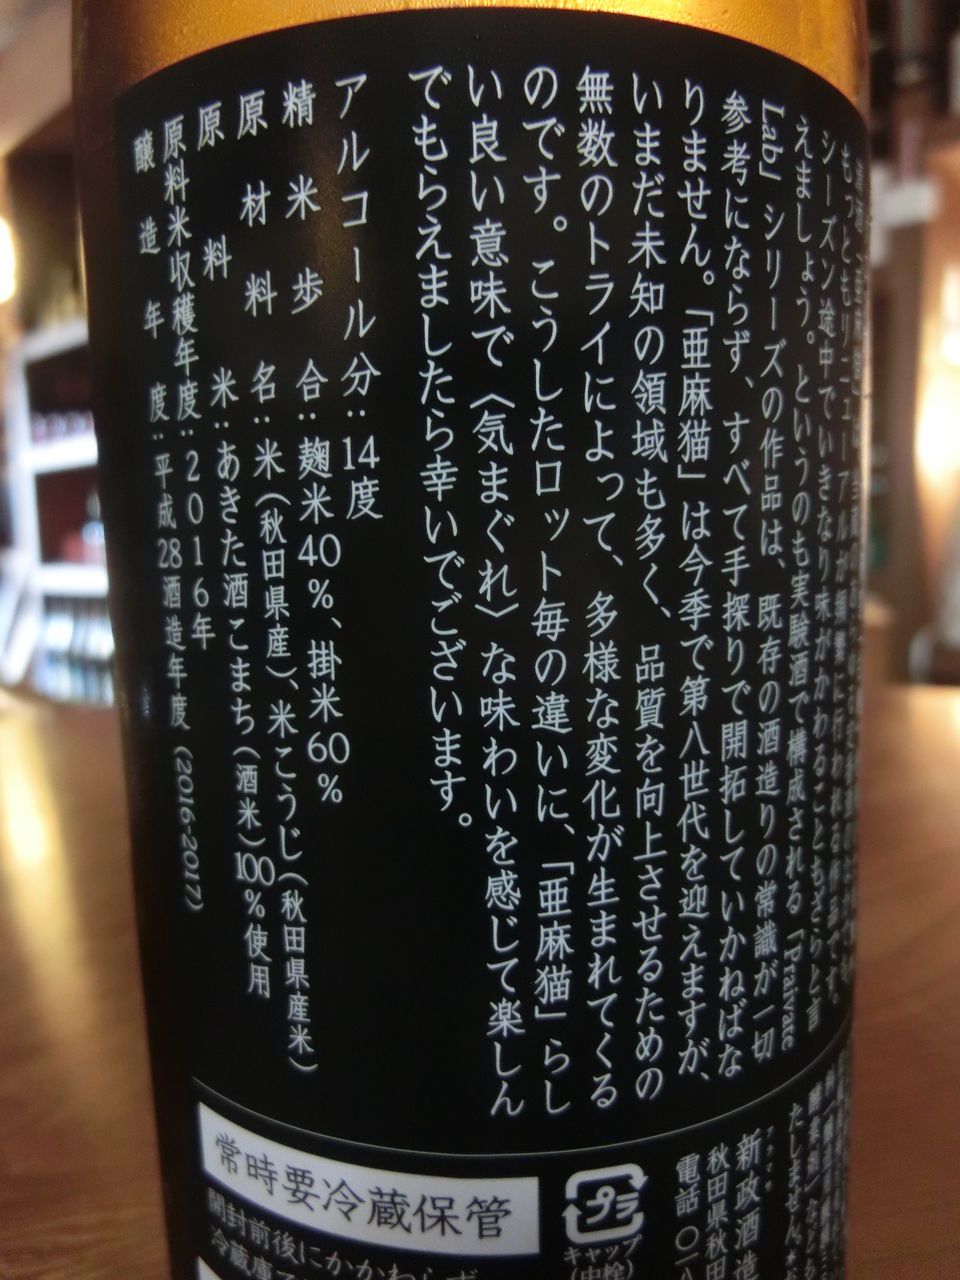 もっともリニューアルが頻繁に行われる作品です。
シーズン途中でいきなり味がかわることもざらと言
えましょう。というのも実験酒で構成される「Praivate
Lab」シリーズの作品は、既存の酒造りの常識が一切
参考にならず、すべて手探りで開拓していかねばな
りません。「亜麻猫」は今季で第八世代を迎えますが、
いまだ未知の領域も多く、品質を向上させるための
無数のトライによって、多様な変化が生まれてくる
のです。こうしたロット毎の違いに、「亜麻猫」らし
い良い意味で〈気まぐれ〉な味わいを感じて楽しん
でもらえましたら幸いでございます。
アルコール分：14度
精米歩合：麹米40%、掛米60%
原材料名：米（秋田県産）、米こうじ（秋田県産米）
原料米：あきた酒こまち（酒米）100%使用
原料米収穫年度：2016年
醸造年度：平成28酒造年度（2016-2017）
新政酒造
秋田県秋田
電話 〇一八
プラ
キャップ
（中栓）
常時要冷蔵保管
開封前後にかかわらず
冷蔵庫
たしません。